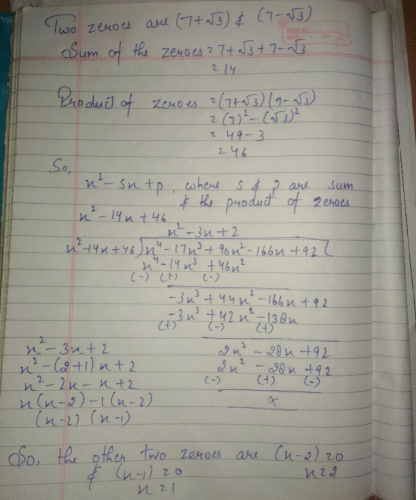 Two zeroes are (7+√3) & (7-√3)
Sum of the zeroes = 7+√3+7-√3
= 14
Product of zeroes = (7+√3)(7-√3)
= (7)² - (√3)²
= 49 - 3
= 46
So,
x² - Sx + p, where S & P are sum
& the product of zeroes
x² - 14x + 46
x² - 3x + 2
x² - 14x + 46) x⁴ - 17x³ + 90x² - 166x + 92 (
x⁴ - 14x³ + 46x²
(-) (+) (-)
-3x³ + 44x² - 166x + 92
-3x³ + 42x² - 138x
(+) (-) (+)
x² - 3x + 2
2x² - 28x + 92
x² - (2+1)x + 2
2x² - 28x + 92
x² - 2x - x + 2
(-) (+) (-)
x(x-2) - 1(x-2)
x
(x-2) (x-1)
So, the other two zeroes are (x-2) = 0
& (x-1) = 0 x = 2
x = 1